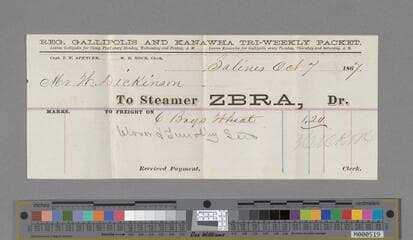 REG. GALLIPOLIS AND KANAWHA TRI-WEEKLY PACKET.
Leaves Gallipolis for Camp Piatt every Monday, Wednesday and Friday, A. M. Leaves Kanawha for Gallipolis every Tuesday, Thursday and Saturday, A. M.
Capt. F. W. SPENCER, W. R. ROCK, Clerk.
Salines Oct 7 1867.
Mr W. Dickinson
To Steamer ZEBRA, Dr.
MARKS. TO FREIGHT ON 6 Bags Wheat 1.20
Clover & Timothy
Received Payment, Clerk.
inches centimetres
Don Williams
M000519